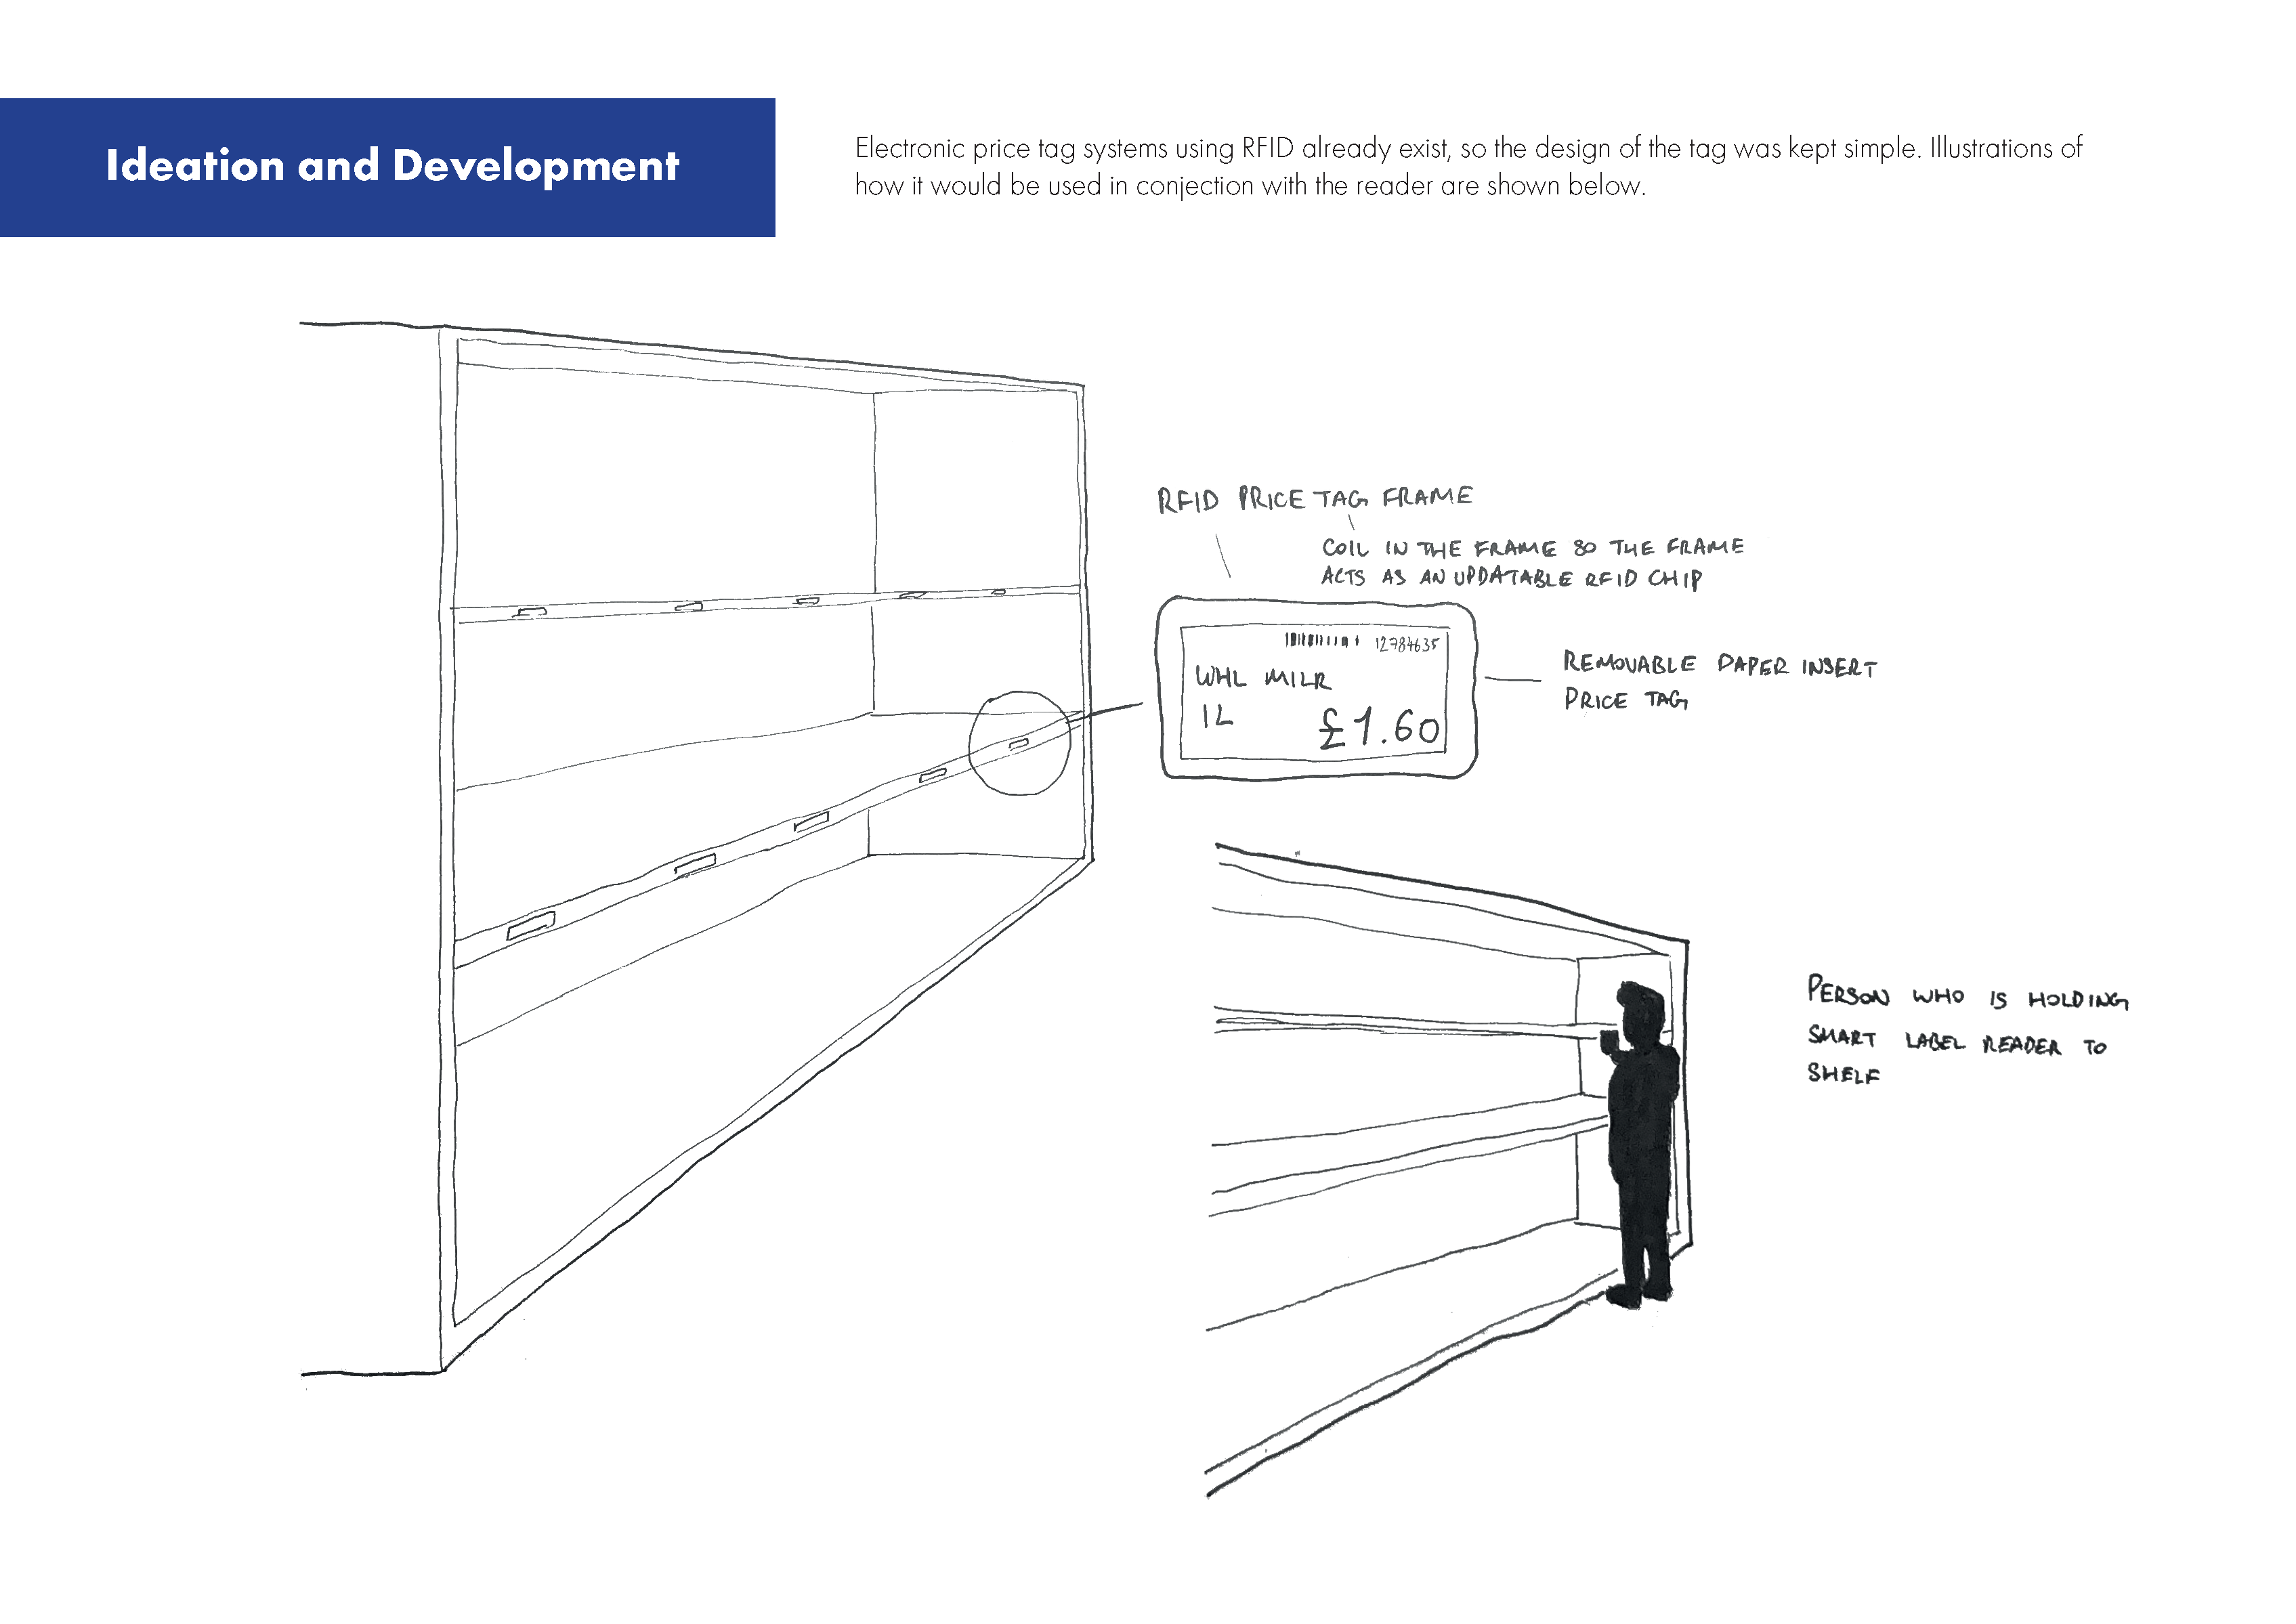 Ideation and Development
Electronic price tag systems using RFID already exist, so the design of the tag was kept simple. Illustrations of
how it would be used in conjection with the reader are shown below.
RFID PRICE TAG FRAME
COIL IN THE FRAME SO THE FRAME
ACTS AS AN UPDATABLE RFID CHIP
12784635
WHL MILK
1L £1.60
REMOVABLE PAPER INSERT
PRICE TAG
PERSON WHO IS HOLDING
SMART LABEL READER TO
SHELF